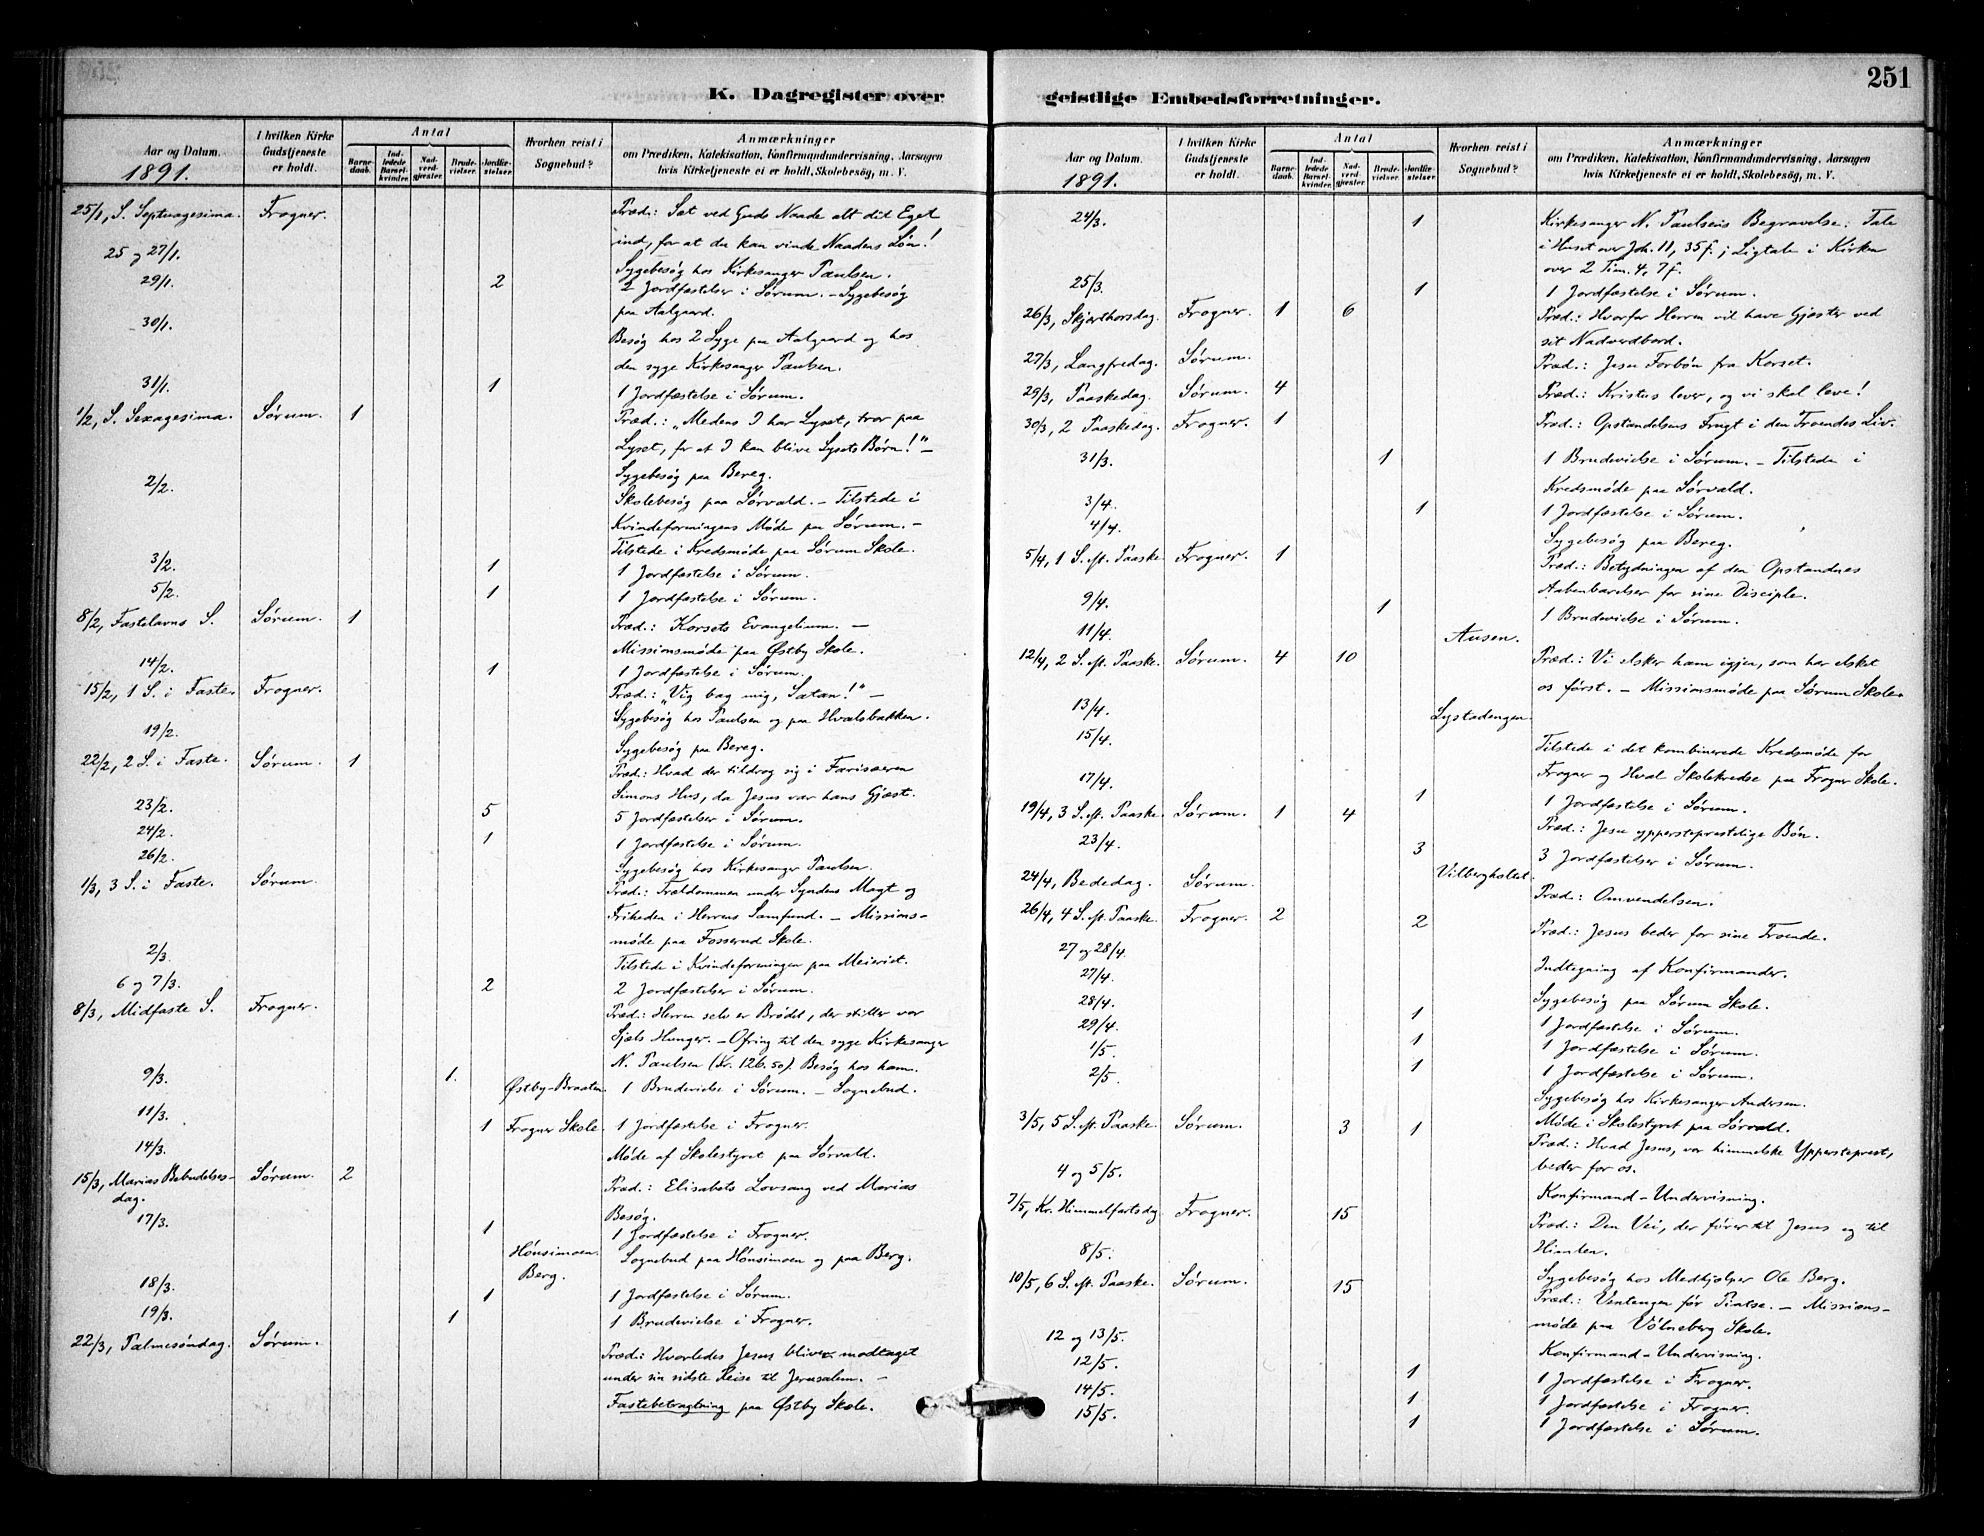 251
K. Dagregister over geistlige Embedsforretninger.
Aar og Datum.
1891.
I hvilken Kirke Gudstjeneste er holdt.
Antal
Barnedaab.
Indledede Barselkvinder.
Nadverdgjester.
Brudevielser.
Jordfæstelser.
Hvorhen reist i Sognebud?
Anmærkninger
om Prædiken, Katekisation, Konfirmandundervisning, Aarsagen
hvis Kirketjeneste ei er holdt, Skolebesøg, m. V.
25/1, S. Septuagesima. Frogner. Præd.: Sæt ved Guds Naade alt dit Eget
ind, for at du kan vinde Naadens Løn!
25 og 27/1. Sygebesøg hos Kirkesanger Paulsen.
29/1. 2 2 Jordfæstelser i Sørum. – Sygebesøg
paa Aalgaard.
30/1. Besøg hos 2 Syge paa Aalgaard og hos
den syge Kirkesanger Paulsen.
31/1. 1 1 Jordfæstelse i Sørum.
1/2, S. Sexagesima. Sørum. 1 Præd.: „Medens I har Lyset, tror paa
Lyset, for at I kan blive Lysets Børn!" –
Sygebesøg paa Bereg.
2/2. Skolebesøg paa Sørvald. – Tilstede i
Kvindeforeningens Møde paa Sørum. –
Tilstede i Kredsmøde paa Sørum Skole.
3/2. 1 1 Jordfæstelse i Sørum.
5/2. 1 1 Jordfæstelse i Sørum.
8/2, Fastelavns S. Sørum. 1 Præd.: Korsets Evangelium. –
Missionsmøde paa Østby Skole.
14/2. 1 1 Jordfæstelse i Sørum.
15/2, 1 S. i Faste. Frogner. Præd.: „Vig bag mig, Satan!" –
Sygebesøg hos Paulsen og paa Hvalsbakken.
19/2. Sygebesøg paa Bereg.
22/2, 2 S. i Faste. Sørum. 1 Præd.: Hvad der tildrog sig i Farisæeren
Simons Hus, da Jesus var hans Gjæst.
23/2. 5 5 Jordfæstelser i Sørum.
24/2. 1 1 Jordfæstelse i Sørum.
26/2. Sygebesøg hos Kirkesanger Paulsen.
1/3, 3 S. i Faste. Sørum. Præd.: Trældommen under Syndens Magt og
Friheden i Herrens Samfund. – Missions-
møde paa Fosserud Skole.
2/3. Tilstede i Kvindeforeningen paa Meieriet.
6 og 7/3. 2 2 Jordfæstelser i Sørum.
8/3, Midfaste S. Frogner. Præd.: Herren selv er Brødet, der stiller vor
Sjæls Hunger. – Ofring til den syge Kirkesanger
N. Paulsen (Kr. 126.50). Besøg hos ham.
9/3. 1. Østby-Braaten. 1 Brudevielse i Sørum. – Sognebud.
11/3. 1 Frogner Skole. 1 Jordfæstelse i Frogner.
14/3. Møde af Skolestyret paa Sørvald.
15/3, Marias Bebudelses- Sørum. 2 Præd.: Elisabets Lovsang ved Marias
dag. Besøg.
17/3. 1 1 Jordfæstelse i Frogner.
Hønsimoen. Sognebud paa Hønsimoen og paa Berg.
Berg.
18/3. 1 1 Jordfæstelse i Sørum.
19/3. 1 1 Brudevielse i Frogner.
22/3, Palmesøndag. Sørum. Præd.: Hvorledes Jesus bliver modtaget
under sin sidste Reise til Jerusalem. –
Fastebetragtning paa Østby Skole.
Aar og Datum.
1891.
I hvilken Kirke Gudstjeneste er holdt.
Antal
Barnedaab.
Indledede Barselkvinder.
Nadverdgjester.
Brudevielser.
Jordfæstelser.
Hvorhen reist i Sognebud?
Anmærkninger
om Prædiken, Katekisation, Konfirmandundervisning, Aarsagen
hvis Kirketjeneste ei er holdt, Skolebesøg, m. V.
24/3. 1 Kirkesanger N. Paulsens Begravelse: Tale
i Huset over Joh. 11, 35 f.; Ligtale i Kirken
over 2 Tim. 4, 7 f.
25/3. 1 1 Jordfæstelse i Sørum.
26/3, Skjærthorsdag. Frogner. 1 6 Præd.: Hvorfor Herren vil have Gjæster ved
sit Nadverdbord.
27/3, Langfredag. Sørum. Præd.: Jesu Forbøn fra Korset.
29/3, Paaskedag. Sørum. 4 Præd.: Kristus lever, og vi skal leve!
30/3, 2 Paaskedag. Frogner. 1 Præd.: Opstandelsens Frugt i den Troendes Liv.
31/3. 1 1 Brudevielse i Sørum. – Tilstede i
Kredsmøde paa Sørvald.
3/4. 1 1 Jordfæstelse i Sørum.
4/4. Sygebesøg paa Bereg.
5/4, 1 S. eft. Paaske. Frogner. 1 Præd.: Betydningen af den Opstandnes
Aabenbarelser for sine Disciple.
9/4. 1 1 Brudevielse i Sørum.
11/4. Ausen.
12/4, 2 S. eft. Paaske. Sørum. 4 10 Præd.: Vi elsker ham igjen, som har elsket
os først. – Missionsmøde paa Sørum Skole.
13/4. Lystadengen.
15/4. Tilstede i det kombinerede Kredsmøde for
Frogner og Hval Skolekredse paa Frogner Skole.
17/4. 1 1 Jordfæstelse i Sørum.
19/4, 3 S. eft. Paaske. Sørum. 1 4 Præd.: Jesu ypperstepræstelige Bøn.
23/4. 3 3 Jordfæstelser i Sørum.
24/4, Bededag. Sørum. Vilbergholet. Præd.: Omvendelsen.
26/4, 4 S. eft. Paaske. Frogner. 2 2 Præd.: Jesus beder for sine Troende.
27 og 28/4. Indtegning af Konfirmander.
27/4. Sygebesøg paa Sørum Skole.
28/4. 1 1 Jordfæstelse i Sørum.
29/4. 1 1 Jordfæstelse i Sørum.
1/5. 1 1 Jordfæstelse i Sørum.
2/5. Sygebesøg hos Kirkesanger Andersen.
Møde i Skolestyret paa Sørvald.
3/5, 5 S. eft. Paaske. Sørum. 3 1 Præd.: Hvad Jesus, vor himmelske Ypperstepræst,
beder for os.
4 og 5/5. Konfirmand-Undervisning.
7/5, Kr. Himmelfartsdag. Frogner. 15 Præd.: Den Vei, der fører til Jesus og til
Himlen.
8/5. Sygebesøg hos Medhjælper Ole Berg.
10/5, 6 S. eft. Paaske. Sørum. 15 Præd.: Ventingen før Pintse. – Missions-
møde paa Vølneberg Skole.
12 og 13/5. Konfirmand-Undervisning.
12/5. 1 1 Jordfæstelse i Frogner.
14/5. 1 1 Jordfæstelse i Frogner.
15/5. 1 1 Jordfæstelse i Sørum.